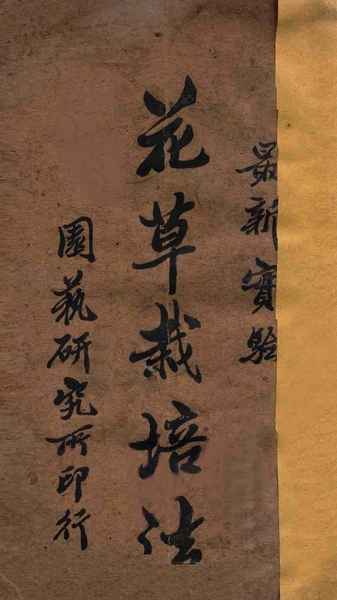 最新實驗
花草栽培法
園藝研究所印行